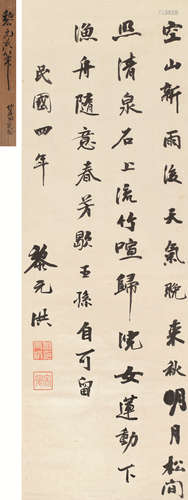 空山新雨後天氣晚來秋明月松間
照清泉石上流竹喧歸浣女蓮動下
漁舟隨意春芳歇王孫自可留
民國四年
黎元洪